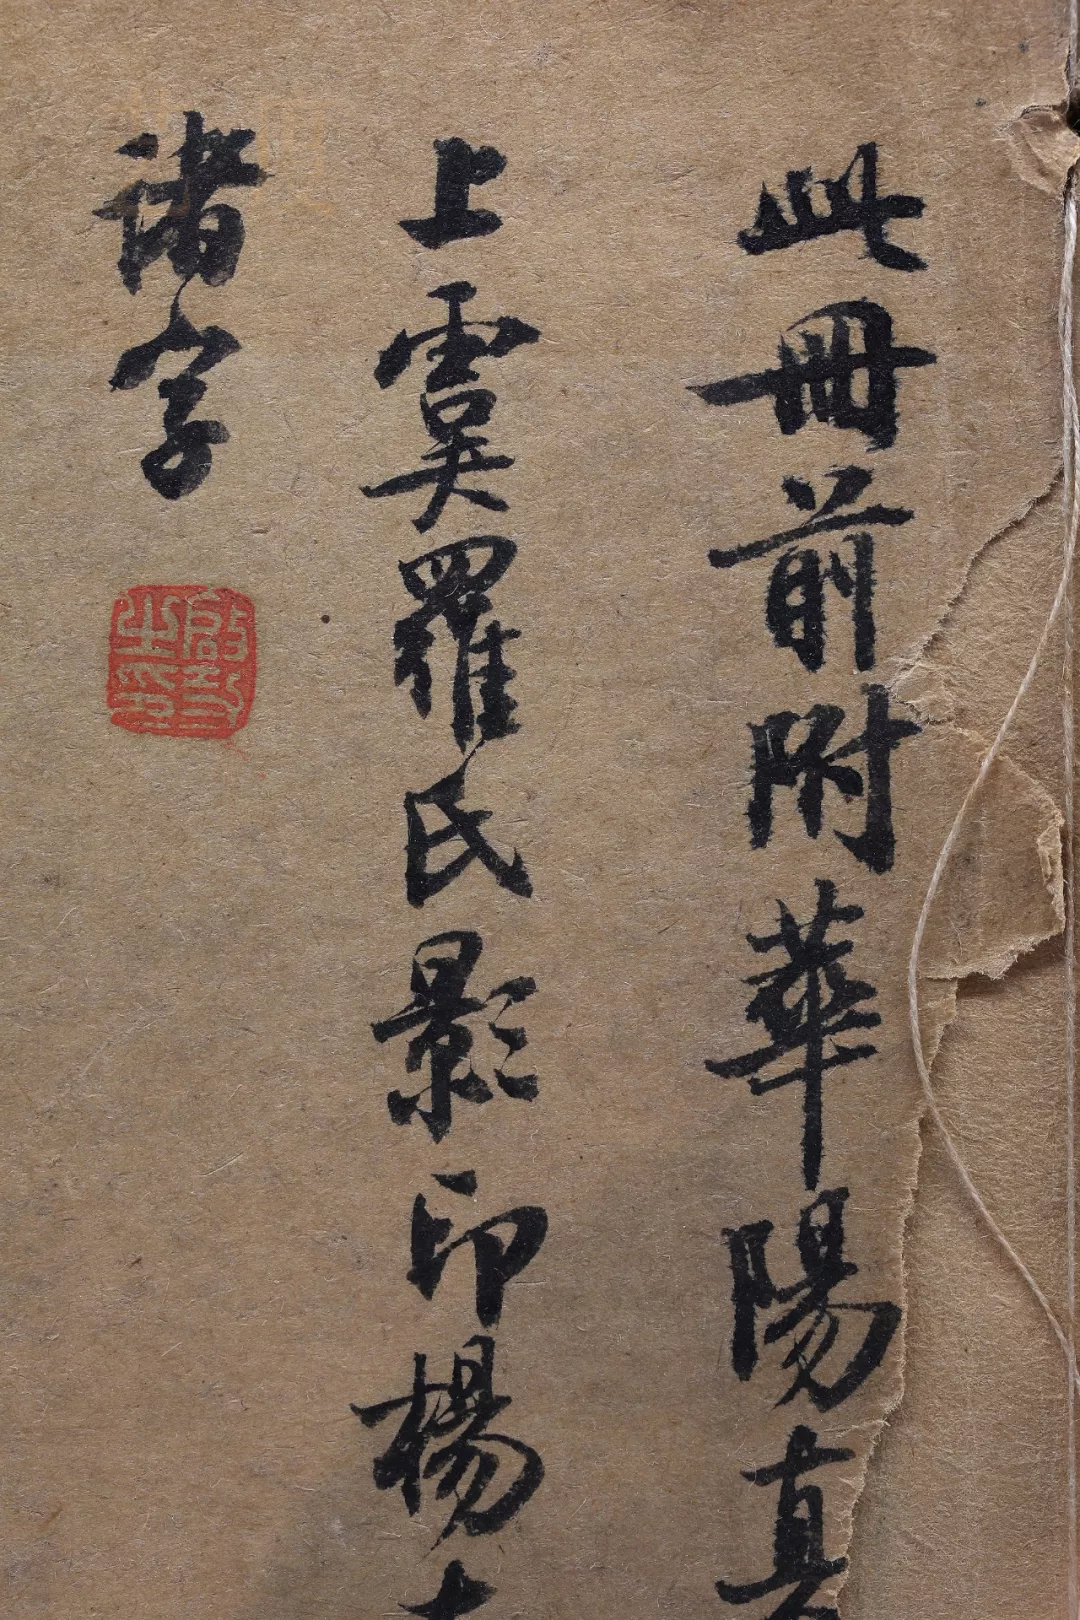 此冊前附華陽真
上虞羅氏影印楊
諸字
啟功之印